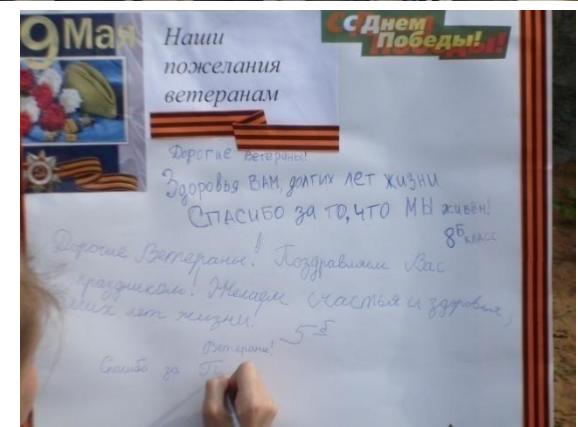 9 Мая
Наши
пожелания
ветеранам
С Днем
Победы!
Дорогие Ветераны!
Здоровья ВАМ, долгих лет жизни
СПАСИБО за то, что МЫ живём!
8Б класс
Дорогие Ветераны! Поздравляем Вас
праздником! Желаем счастья и здоровья,
лет жизни.
5б
Ветераны!
Спасибо за